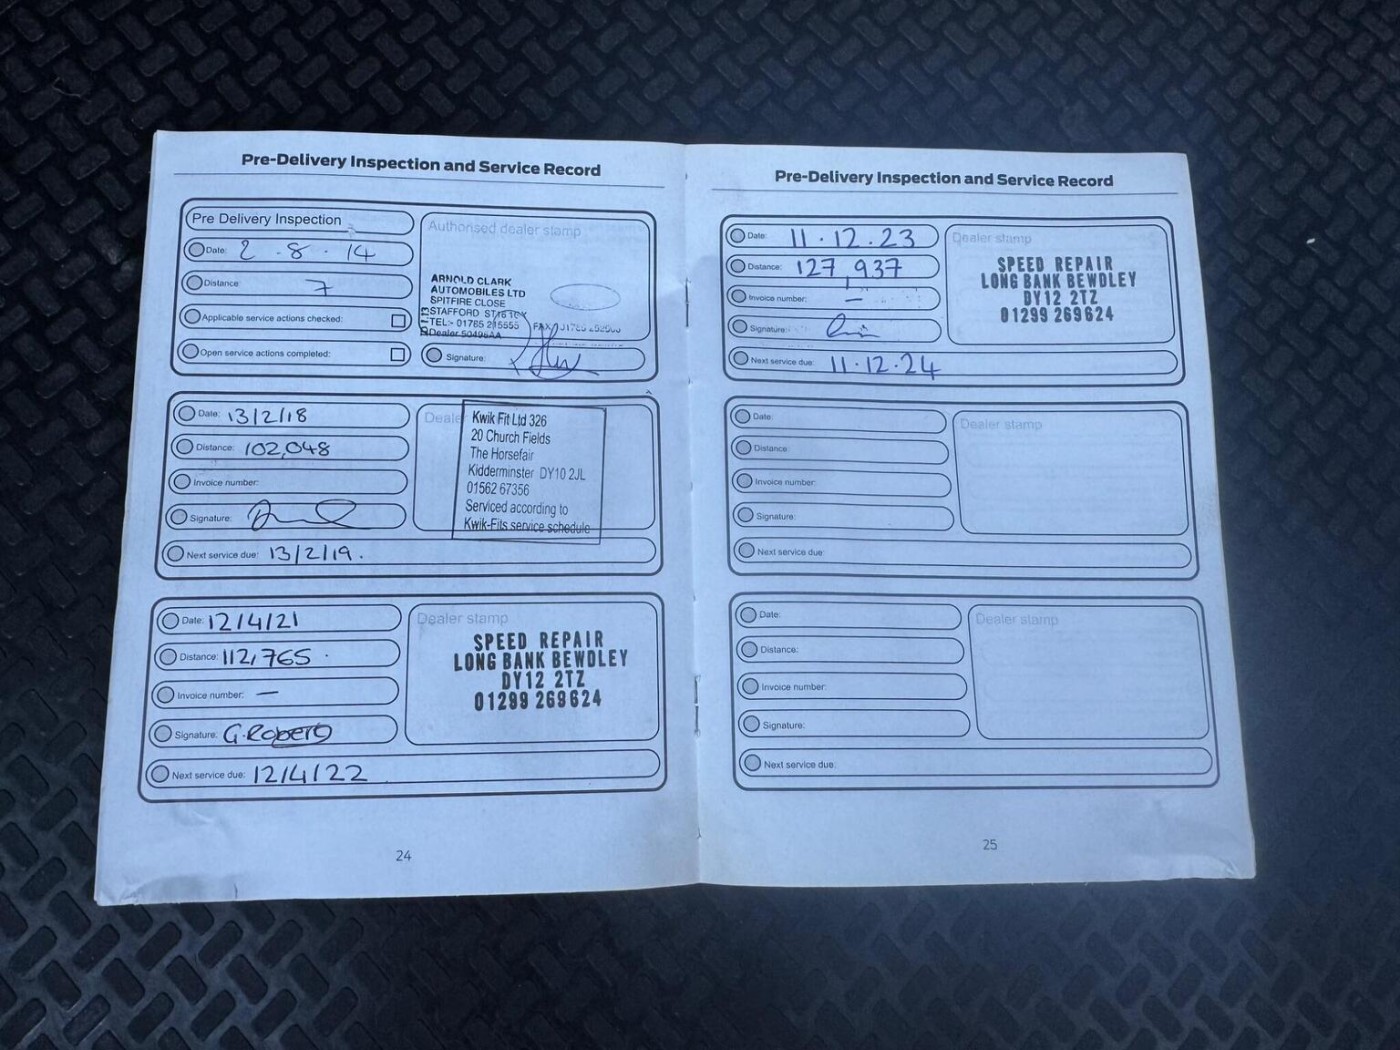 Pre-Delivery Inspection and Service Record
Pre Delivery Inspection
Date: 2 . 8 . 14
Distance: 7
Applicable service actions checked:
Open service actions completed:
Authorised dealer stamp
ARNOLD CLARK
AUTOMOBILES LTD
SPITFIRE CLOSE
STAFFORD
TEL:- 01785 215555 FAX
Dealer 50496AA
Signature:
Date: 13/2/18
Distance: 102,048
Invoice number:
Signature:
Next service due: 13/2/19.
Dealer
Kwik Fit Ltd 326
20 Church Fields
The Horsefair
Kidderminster DY10 2JL
01562 67356
Serviced according to
Kwik-Fits service schedule
Date: 12/4/21
Distance: 112,765
Invoice number: —
Signature: G. Roberts
Next service due: 12/4/22
Dealer stamp
SPEED REPAIR
LONG BANK BEWDLEY
DY12 2TZ
01299 269624
24
Pre-Delivery Inspection and Service Record
Date: 11.12.23
Distance: 127,937
Invoice number: —
Signature:
Next service due: 11.12.24
Dealer stamp
SPEED REPAIR
LONG BANK BEWDLEY
DY12 2TZ
01299 269624
Date:
Distance:
Invoice number:
Signature:
Next service due:
Dealer stamp
Date:
Distance:
Invoice number:
Signature:
Next service due:
Dealer stamp
25